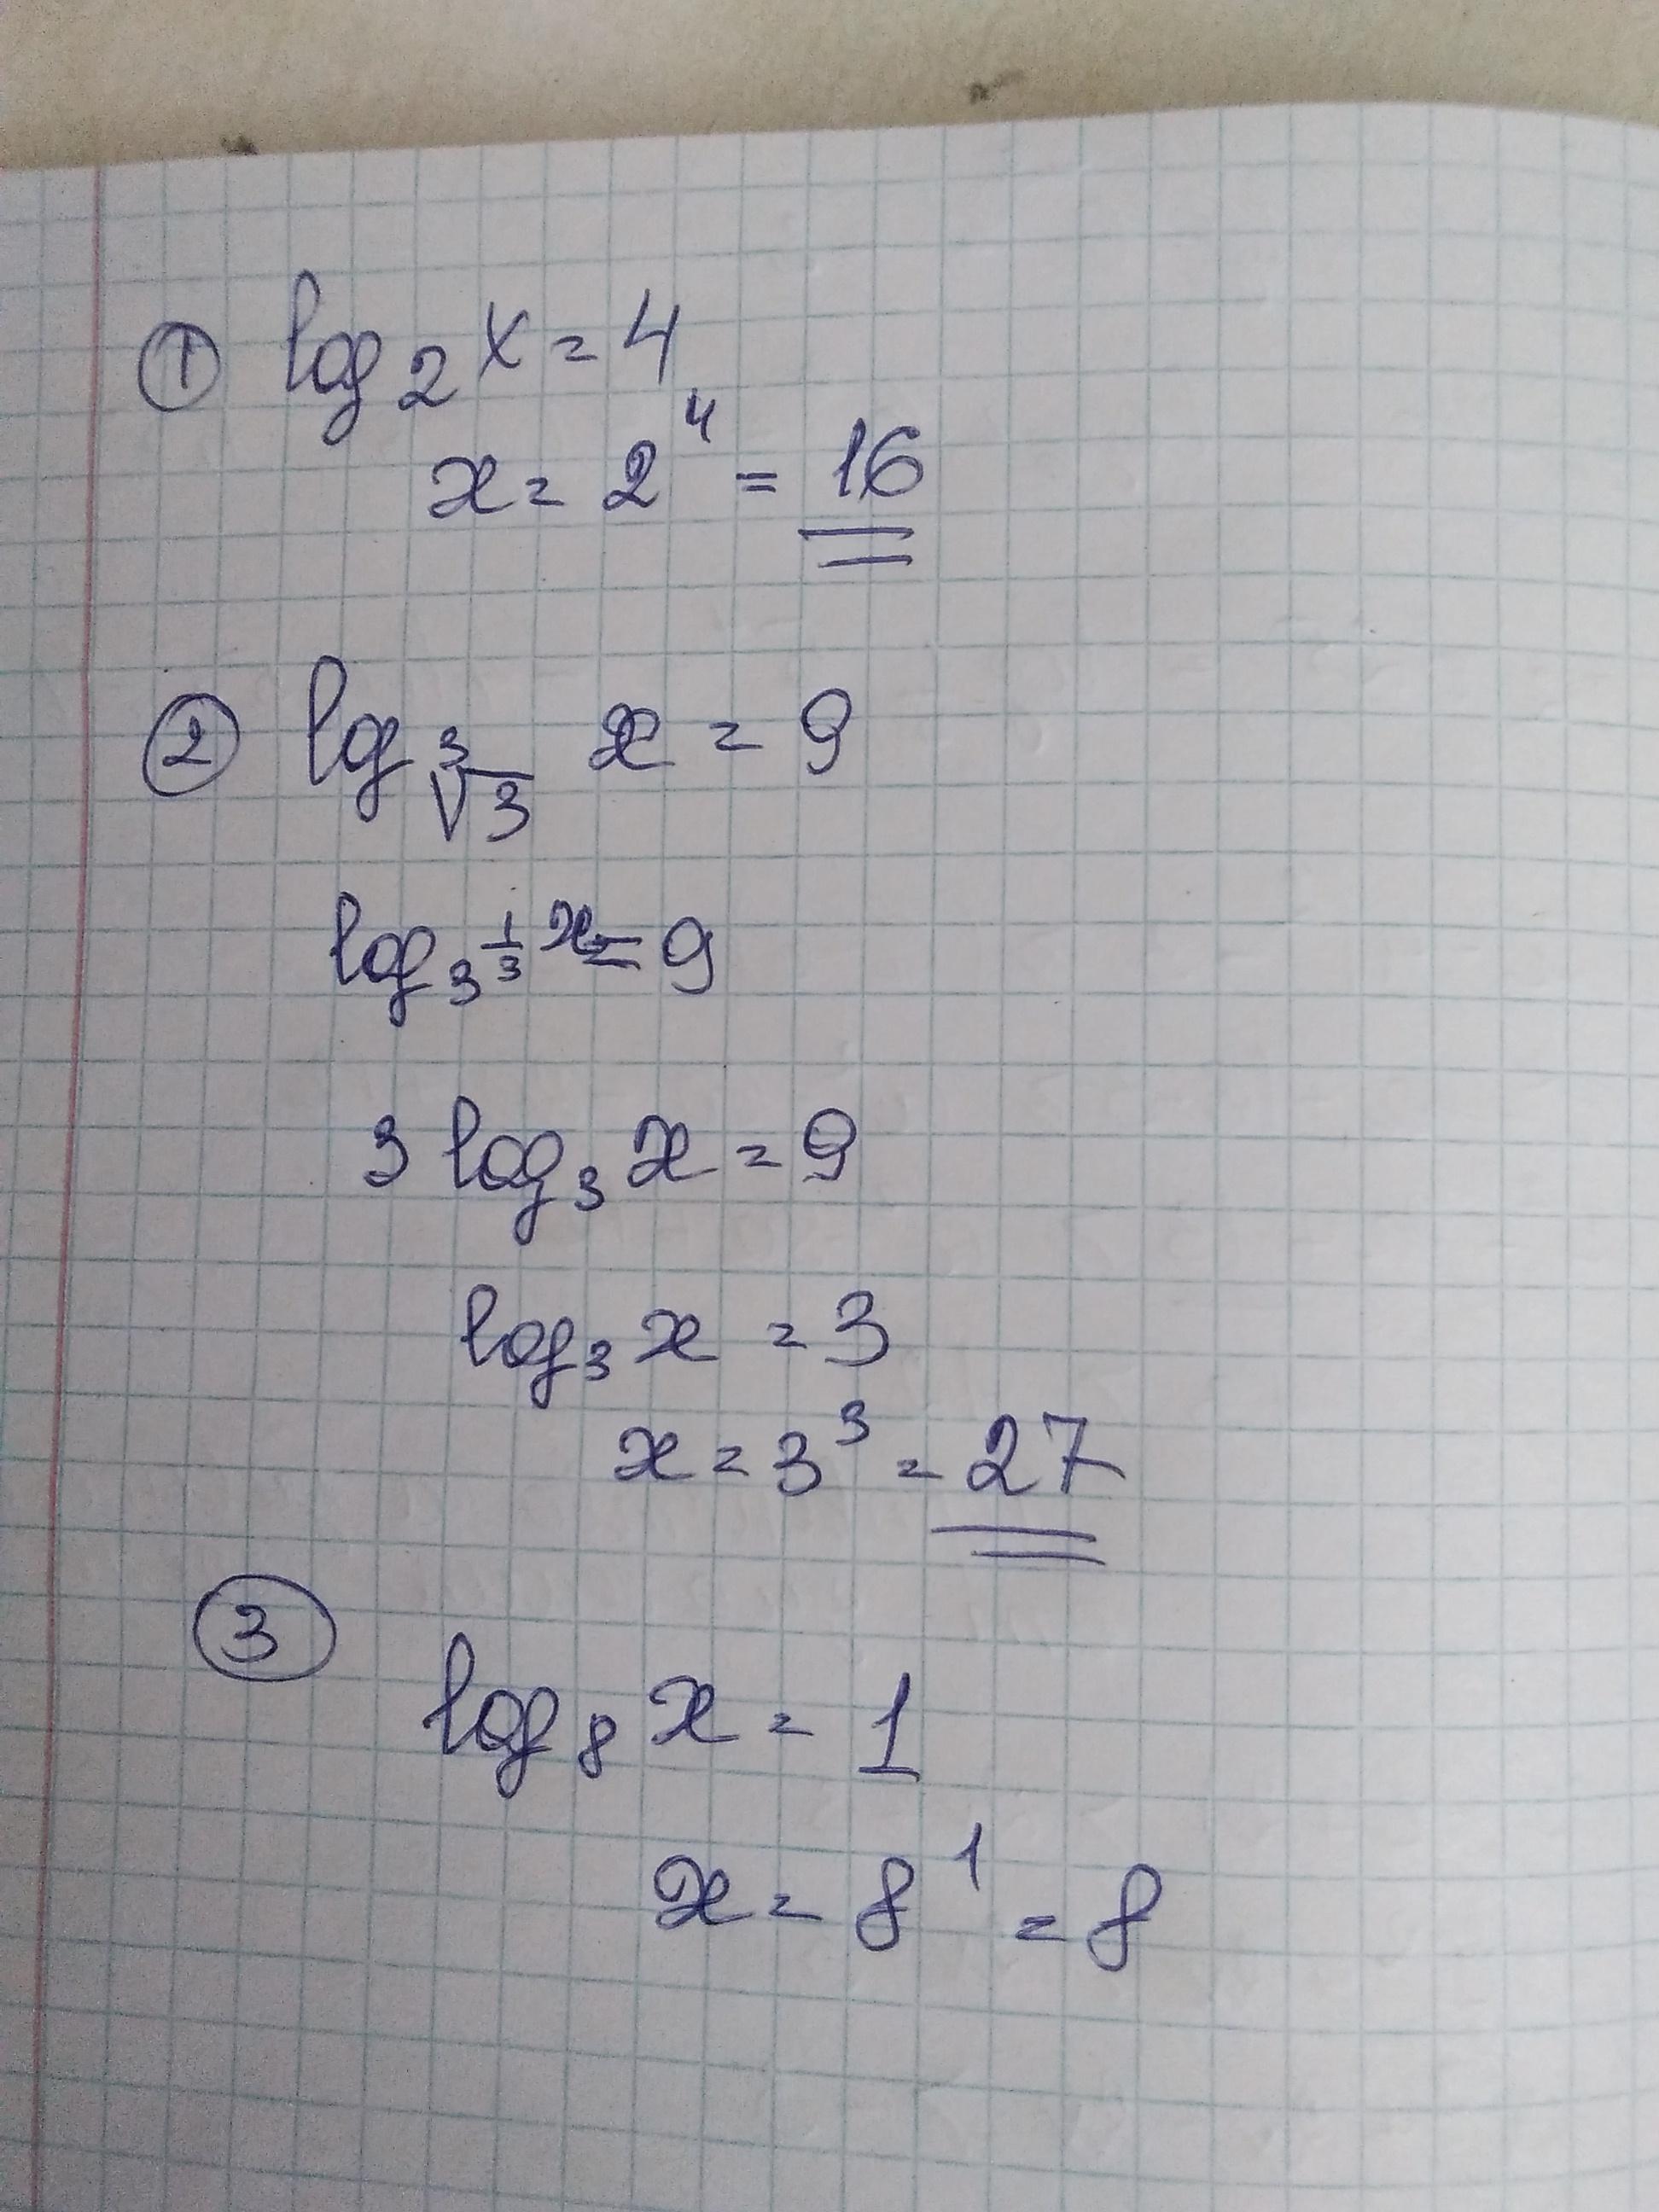 ① log₂ x = 4
x = 2⁴ = 16
② log ∛3 x = 9
log₃ 1/3 x = 9
3 log₃ x = 9
log₃ x = 3
x = 3³ = 27
③
log₈ x = 1
x = 8¹ = 8